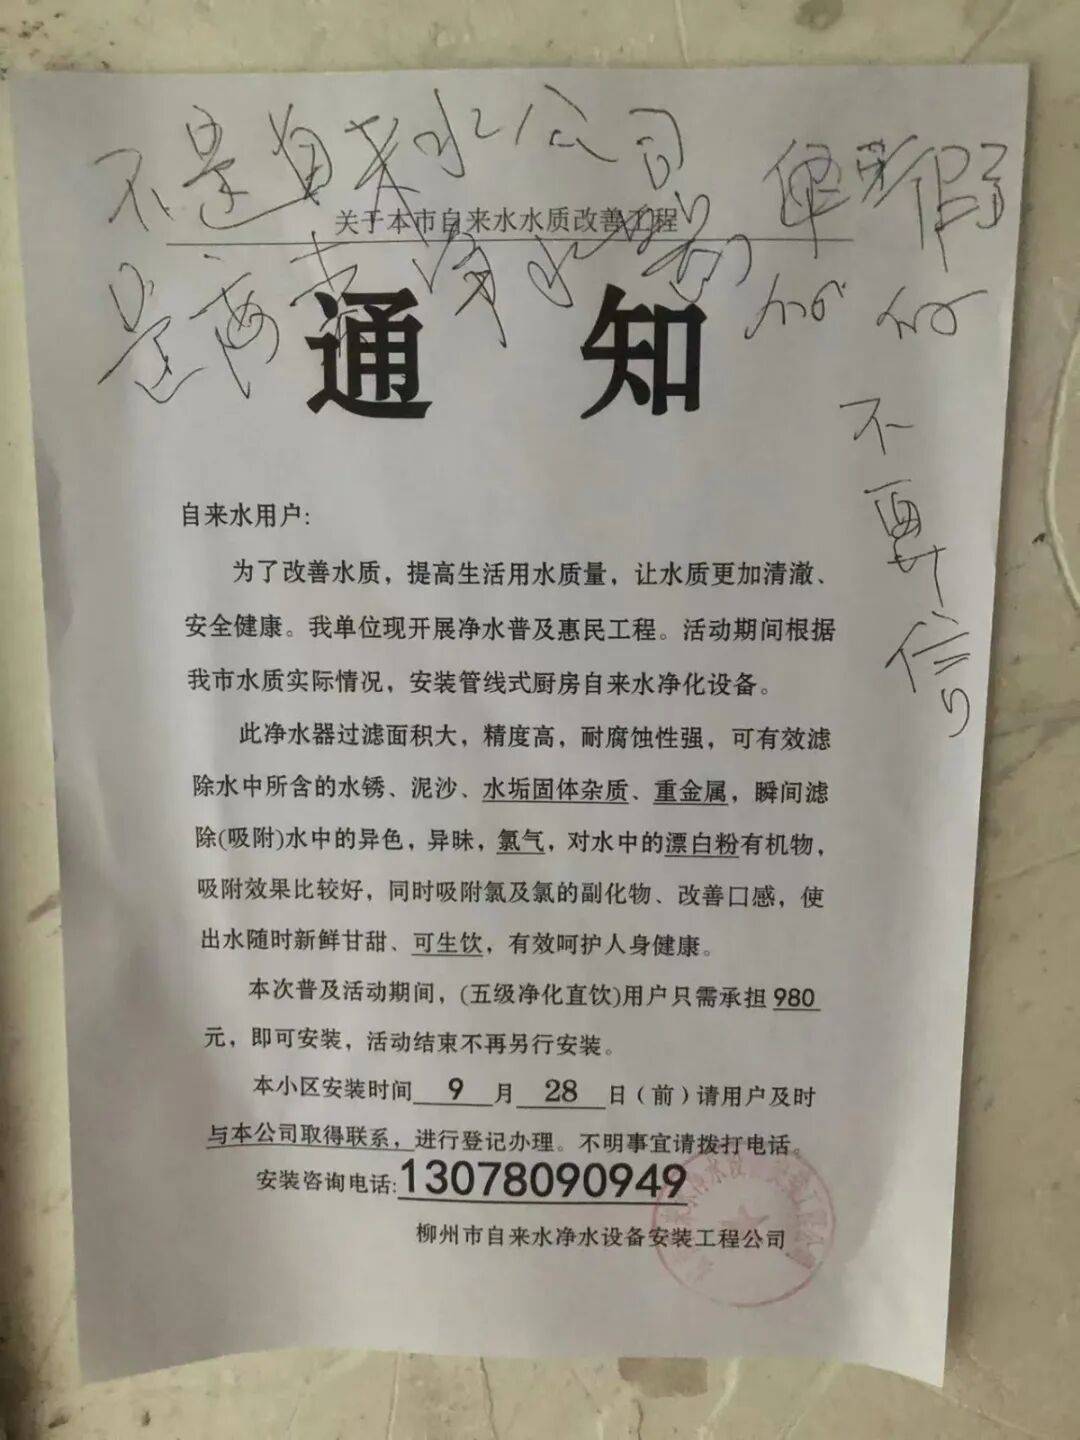 不是自来水公司
是卖净水器的
是骗
假的
不要信
关于本市自来水水质改善工程
通 知
自来水用户：
为了改善水质，提高生活用水质量，让水质更加清澈、
安全健康。我单位现开展净水普及惠民工程。活动期间根据
我市水质实际情况，安装管线式厨房自来水净化设备。
此净水器过滤面积大，精度高，耐腐蚀性强，可有效滤
除水中所含的水锈、泥沙、水垢固体杂质、重金属，瞬间滤
除(吸附)水中的异色，异昧，氯气，对水中的漂白粉有机物，
吸附效果比较好，同时吸附氯及氯的副化物、改善口感，使
出水随时新鲜甘甜、可生饮，有效呵护人身健康。
本次普及活动期间，(五级净化直饮)用户只需承担980
元，即可安装，活动结束不再另行安装。
本小区安装时间 9 月 28 日（前）请用户及时
与本公司取得联系，进行登记办理。不明事宜请拨打电话。
安装咨询电话:13078090949
柳州市自来水净水设备安装工程公司